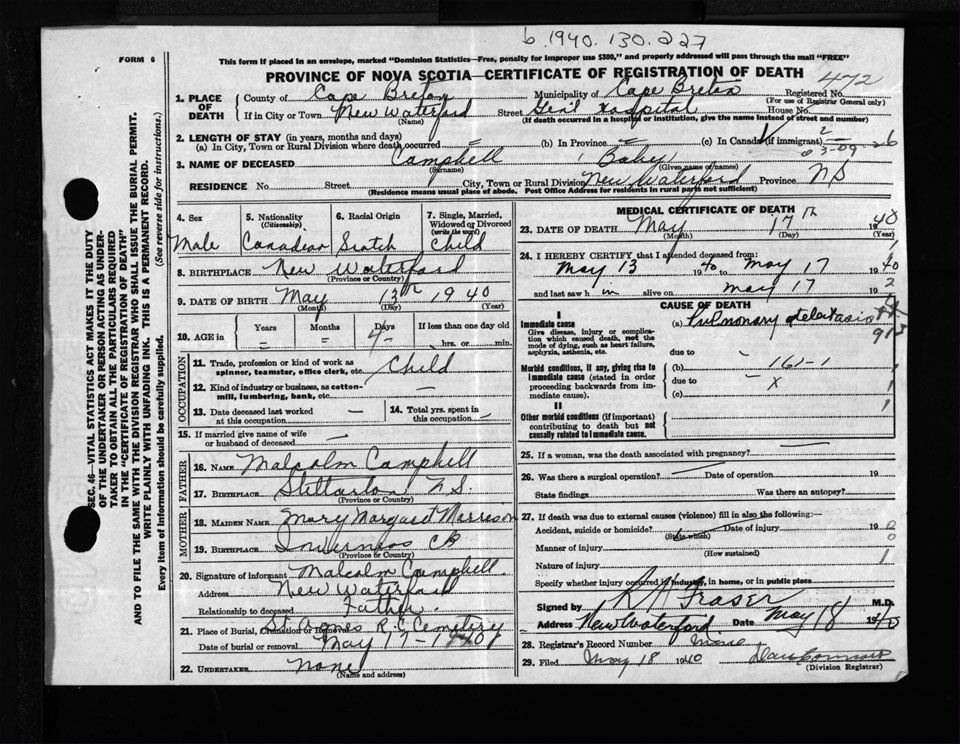 b. 1940. 130. 227
FORM 6
This form if placed in an envelope, marked "Dominion Statistics—Free, penalty for improper use $300," and properly addressed will pass through the mail "FREE"
PROVINCE OF NOVA SCOTIA—CERTIFICATE OF REGISTRATION OF DEATH
472
1. PLACE OF DEATH County of Cape Breton Municipality of Cape Breton Registered No.
(For use of Registrar General only)
If in City or Town New Waterford Street Gen'l Hospital House No.
(Name) (If death occurred in a hospital or institution, give the name instead of street and number)
2. LENGTH OF STAY (in years, months and days)
(a) In City, Town or Rural Division where death occurred — (b) In Province — (c) In Canada (if immigrant)
3. NAME OF DECEASED Campbell Baby
(Surname) (Given name or names)
RESIDENCE No. Street City, Town or Rural Division New Waterford Province NS
(Residence means usual place of abode. Post Office Address for residents in rural parts not sufficient)
4. Sex Male
5. Nationality (Citizenship) Canadian
6. Racial Origin Scotch
7. Single, Married, Widowed or Divorced (write the word) Child
8. BIRTHPLACE New Waterford
(Province or Country)
9. DATE OF BIRTH May 13th 1940
(Month) (Day) (Year)
10. AGE in Years = Months = Days 4- If less than one day old hrs. or min.
OCCUPATION
11. Trade, profession or kind of work as spinner, teamster, office clerk, etc. Child
12. Kind of industry or business, as cotton-mill, lumbering, bank, etc. —
13. Date deceased last worked at this occupation —
14. Total yrs. spent in this occupation —
15. If married give name of wife or husband of deceased —
FATHER
16. NAME Malcolm Campbell
17. BIRTHPLACE Stellarton N.S.
(Province or Country)
MOTHER
18. MAIDEN NAME Mary Margaret Morrison
19. BIRTHPLACE Inverness CB
(Province or Country)
20. Signature of informant Malcolm Campbell
Address New Waterford
Relationship to deceased Father
21. Place of Burial, Cremation or Removal St Agnes R.C Cemetery
Date of burial or removal May 17 - 1940
22. UNDERTAKER None
(Name and address)
MEDICAL CERTIFICATE OF DEATH
23. DATE OF DEATH May 17th 1940
(Month) (Day) (Year)
24. I HEREBY CERTIFY that I attended deceased from:
May 13 1940 to May 17 1940
and last saw h im alive on May 17 19
CAUSE OF DEATH
I
Immediate cause (a) Pulmonary Atelectasis
Give disease, injury or complication which caused death, not the mode of dying, such as heart failure, asphyxia, asthenia, etc.
due to -
Morbid conditions, if any, giving rise to immediate cause (stated in order proceeding backwards from immediate cause). (b) 161-1
due to - x
(c)
II
Other morbid conditions (if important) contributing to death but not causally related to immediate cause.
25. If a woman, was the death associated with pregnancy? —
26. Was there a surgical operation? — Date of operation 19
State findings Was there an autopsy?
27. If death was due to external causes (violence) fill in also the following:—
Accident, suicide or homicide? Date of injury 19
(State which)
Manner of injury
(How sustained)
Nature of injury
Specify whether injury occurred in industry, in home, or in public place
Signed by R H Fraser M.D.
Address New Waterford Date May 18 1940
28. Registrar's Record Number
29. Filed May 18 1940
(Division Registrar)
SEC. 46—VITAL STATISTICS ACT MAKES IT THE DUTY
OF THE UNDERTAKER OR PERSON ACTING AS UNDER-
TAKER TO OBTAIN ALL THE PARTICULARS REQUIRED
IN THE "CERTIFICATE OF REGISTRATION OF DEATH"
AND TO FILE THE SAME WITH THE DIVISION REGISTRAR WHO SHALL ISSUE THE BURIAL PERMIT.
WRITE PLAINLY WITH UNFADING INK. THIS IS A PERMANENT RECORD.
Every item of information should be carefully supplied. (See reverse side for instructions.)